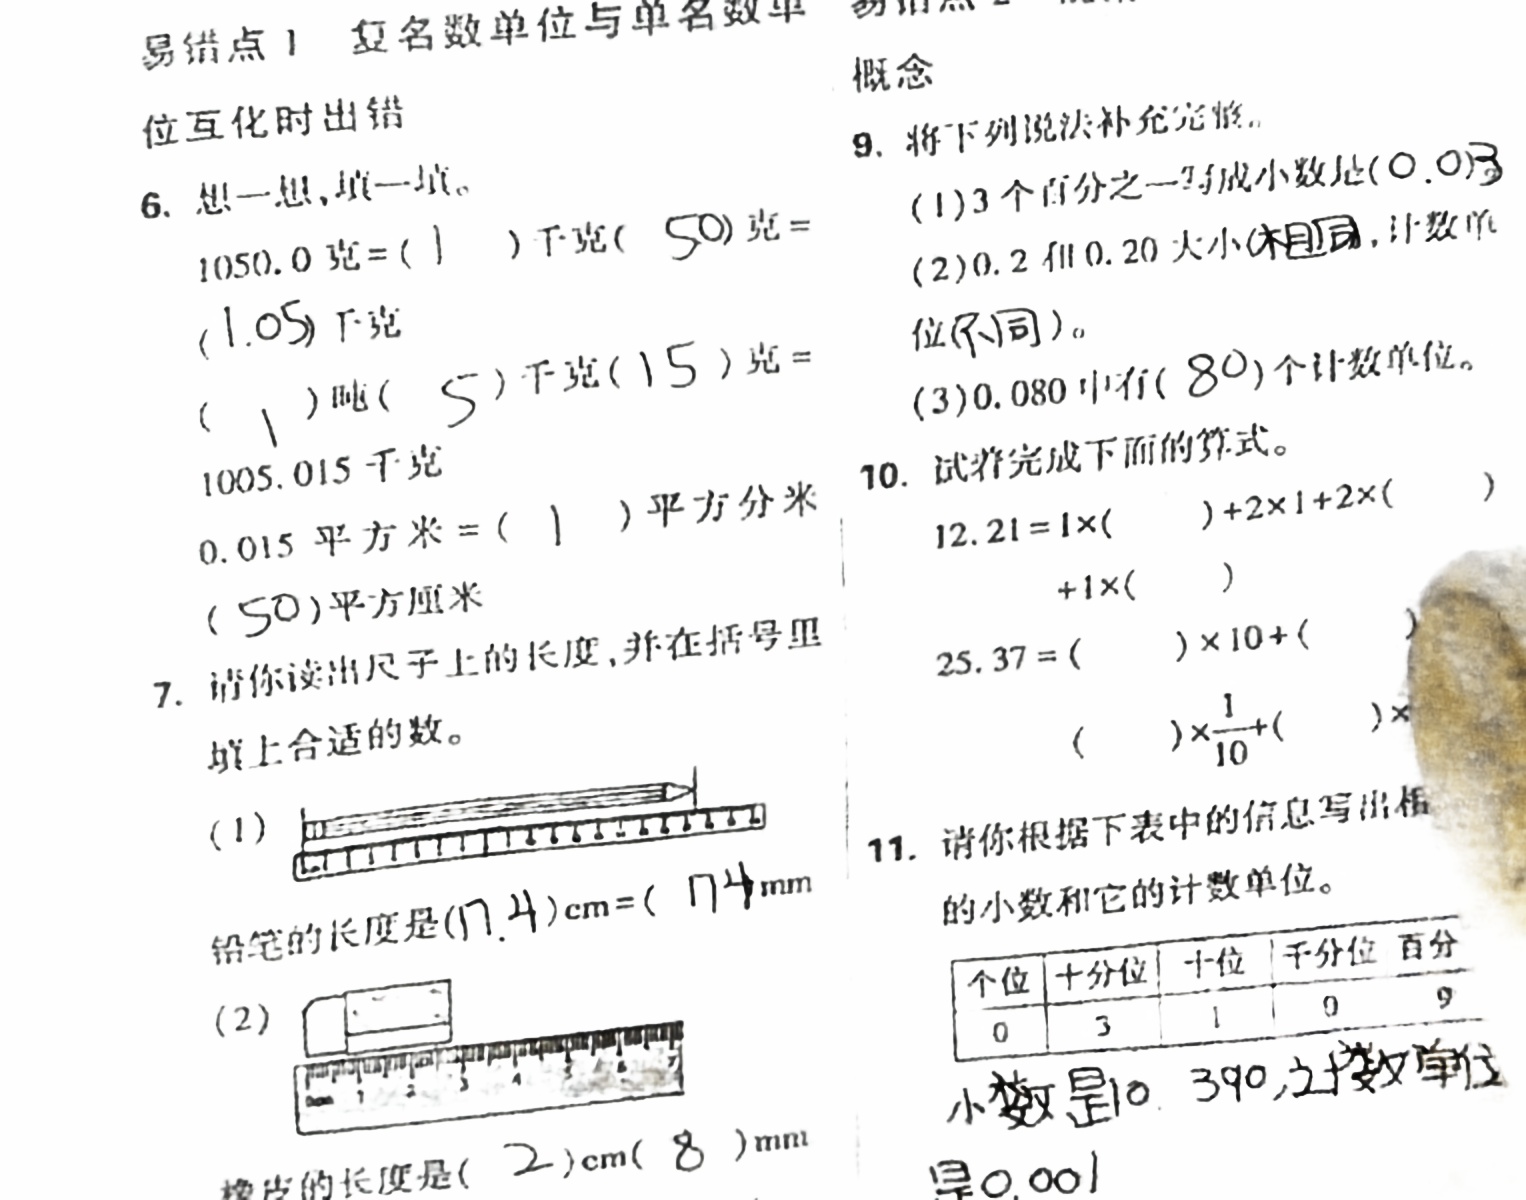 易错点1 复名数单位与单名数单
位互化时出错
6. 想一想,填一填。
1050.0 克=( 1 )千克( 50)克=
(1.05)千克
( 1 )吨( 5 )千克(15 )克=
1005.015 千克
0.015 平方米=( 1 )平方分米
( 50 )平方厘米
7. 请你读出尺子上的长度,并在括号里
填上合适的数。
(1)
铅笔的长度是(17.4)cm=( 174mm
(2)
0mm 1 2 3 4 5 6 7
橡皮的长度是( 2 )cm( 8 )mm
易错点2
概念
9. 将下列说法补充完整。
(1)3个百分之一写成小数是(0.0)3
(2)0.2和0.20大小(相同,计数单
位(不同)。
(3)0.080中有( 80 )个计数单位。
10. 试着完成下面的算式。
12.21=1×( )+2×1+2×( )
+1×( )
25.37=( )×10+( )
( )×1/10+( )×
11. 请你根据下表中的信息写出相
的小数和它的计数单位。
个位 十分位 十位 千分位 百分
0 3 1 0 9
小数是10.390,计数单位
是0.001